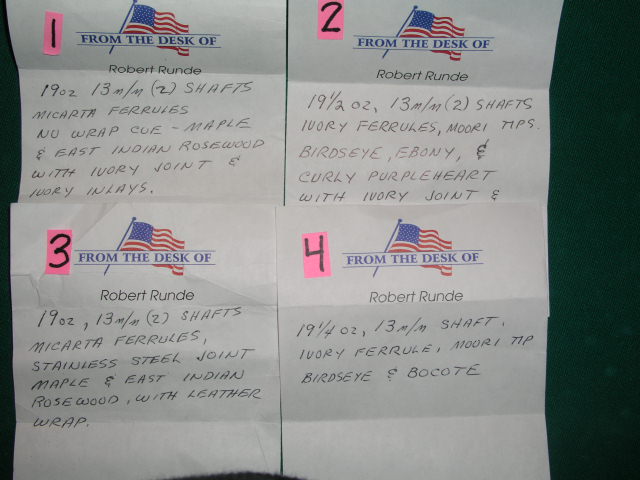 1
FROM THE DESK OF
Robert Runde
19 oz 13 m/m (2) SHAFTS
MICARTA FERRULES
NO WRAP CUE - MAPLE
& EAST INDIAN ROSEWOOD
WITH IVORY JOINT &
IVORY INLAYS.
2
FROM THE DESK OF
Robert Runde
19 1/2 oz, 13 m/m (2) SHAFTS
IVORY FERRULES, MOORI TIPS.
BIRDSEYE, EBONY, &
CURLY PURPLEHEART
WITH IVORY JOINT &
3
FROM THE DESK OF
Robert Runde
19 oz, 13 m/m (2) SHAFTS
MICARTA FERRULES,
STAINLESS STEEL JOINT
MAPLE & EAST INDIAN
ROSEWOOD, WITH LEATHER
WRAP.
4
FROM THE DESK OF
Robert Runde
19 1/4 oz, 13 m/m SHAFT.
IVORY FERRULE, MOORI TIP
BIRDSEYE & BOCOTE